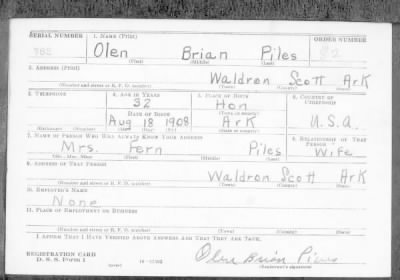 SERIAL NUMBER 1. NAME (Print) ORDER NUMBER
Olen Brian Piles
(First) (Middle) (Last)
2. ADDRESS (Print)
Waldron Scott Ark
(Number and street or R. F. D. number) (Town) (County) (State)
3. TELEPHONE 4. AGE IN YEARS 5. PLACE OF BIRTH 6. COUNTRY OF CITIZENSHIP
32 Hon
DATE OF BIRTH (Town or county)
Aug 18 1908 Ark U.S.A.
(Exchange) (Number) (Mo.) (Day) (Yr.) (State or country)
7. NAME OF PERSON WHO WILL ALWAYS KNOW YOUR ADDRESS 8. RELATIONSHIP OF THAT PERSON
Mrs. Fern Piles Wife
(Mr., Mrs., Miss) (First) (Middle) (Last)
9. ADDRESS OF THAT PERSON
Waldron Scott Ark
(Number and street or R. F. D. number) (Town) (County) (State)
10. EMPLOYER'S NAME
None
11. PLACE OF EMPLOYMENT OR BUSINESS
(Number and street or R. F. D. number) (Town) (County) (State)
I AFFIRM THAT I HAVE VERIFIED ABOVE ANSWERS AND THAT THEY ARE TRUE.
REGISTRATION CARD
D. S. S. Form 1 Olen Brian Piles
(Registrant's signature)